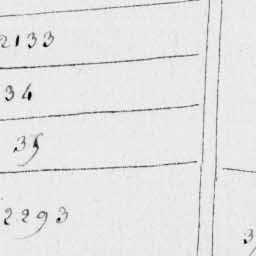 2133
34
35
2293
3